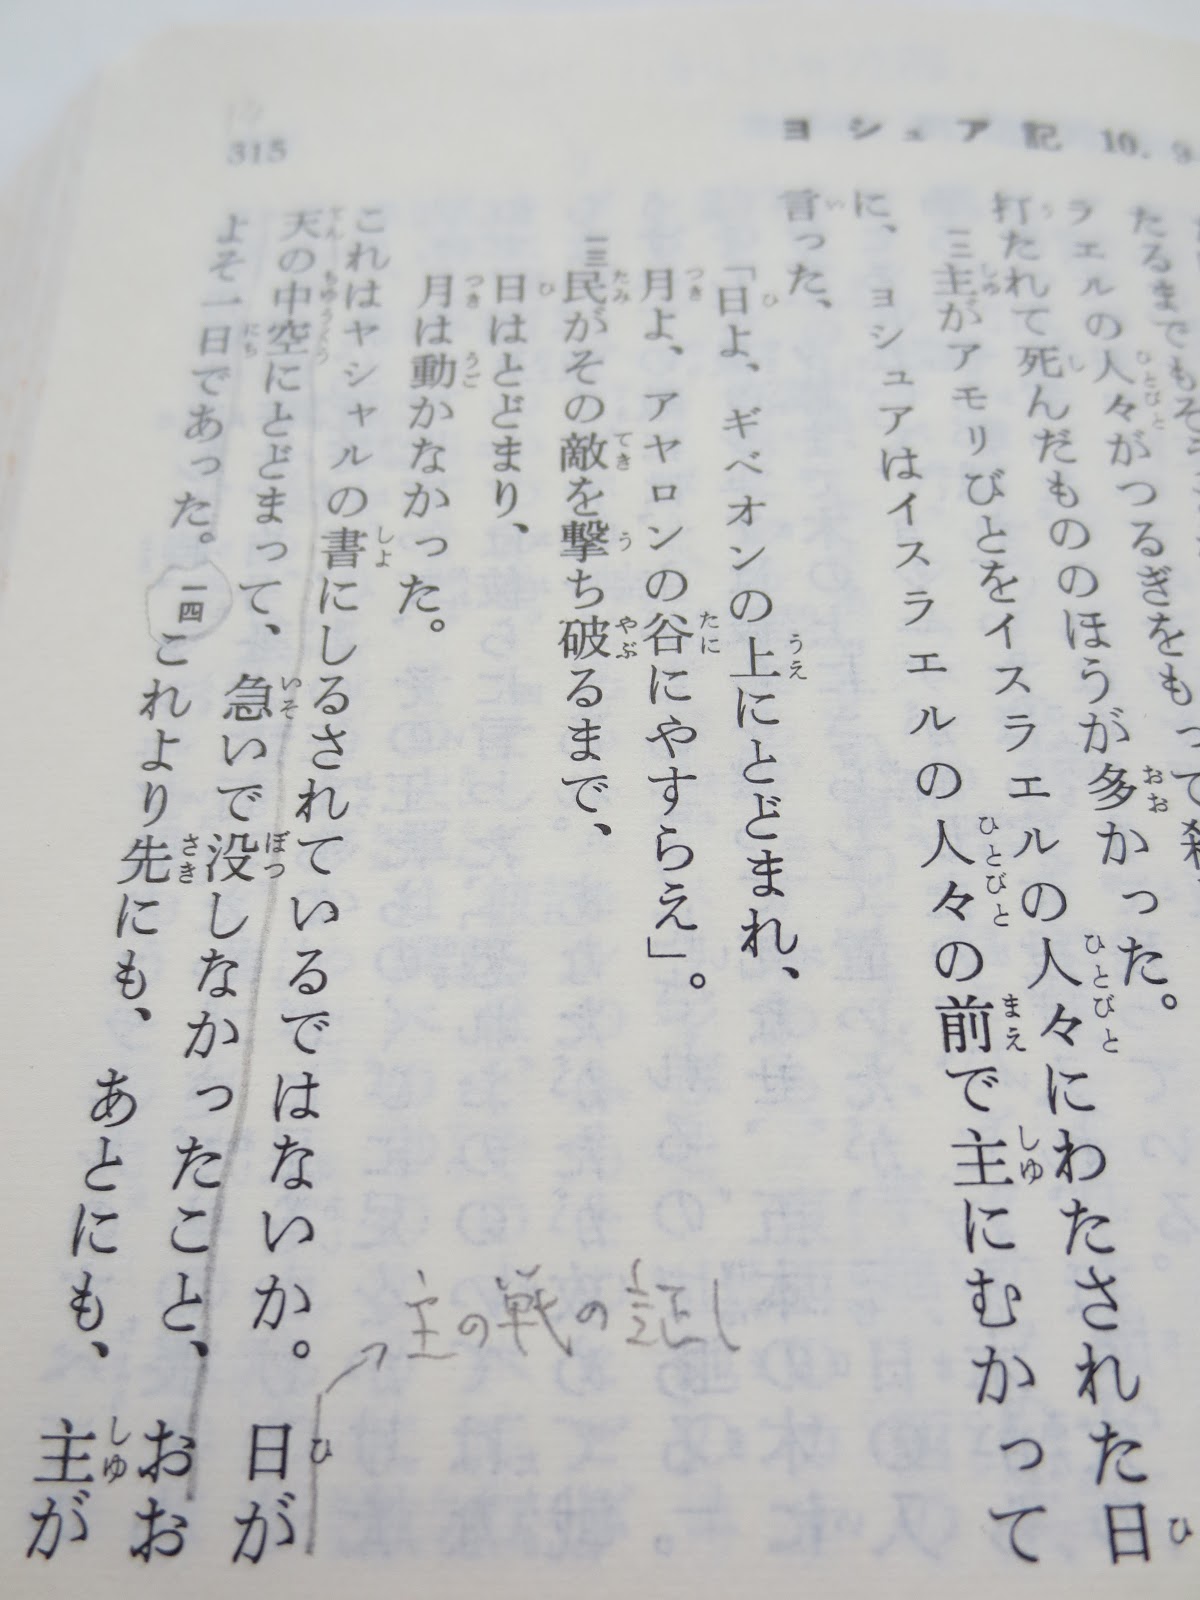 315
ヨシュア記 10.9
たるまでもそ
ラエルの人々がつるぎをもって殺
打たれて死んだもののほうが多かった。
一二主がアモリびとをイスラエルの人々にわたされた日
に、ヨシュアはイスラエルの人々の前で主にむかって
言った、
「日よ、ギベオンの上にとどまれ、
月よ、アヤロンの谷にやすらえ」。
一三民がその敵を撃ち破るまで、
日はとどまり、
月は動かなかった。
これはヤシャルの書にしるされているではないか。日が
天の中空にとどまって、急いで没しなかったこと、おお
よそ一日であった。一四これより先にも、あとにも、主が
主の戦の証し